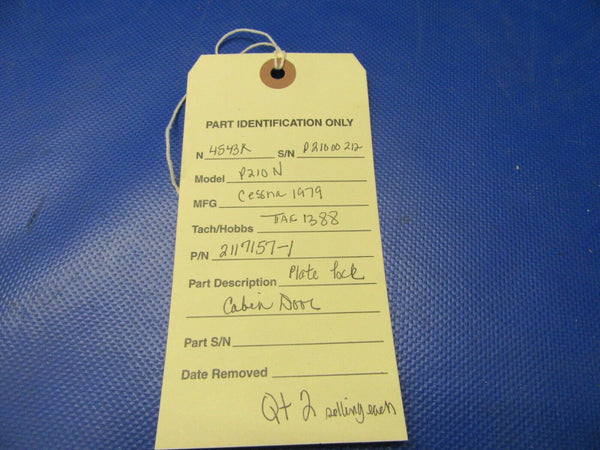 PART IDENTIFICATION ONLY
N 4543K S/N P21000212
Model P210N
MFG Cessna 1979
Tach/Hobbs TTAF 1388
P/N 2117157-1
Part Description Plate lock
Cabin Door
Part S/N
Date Removed
Qt 2 selling each